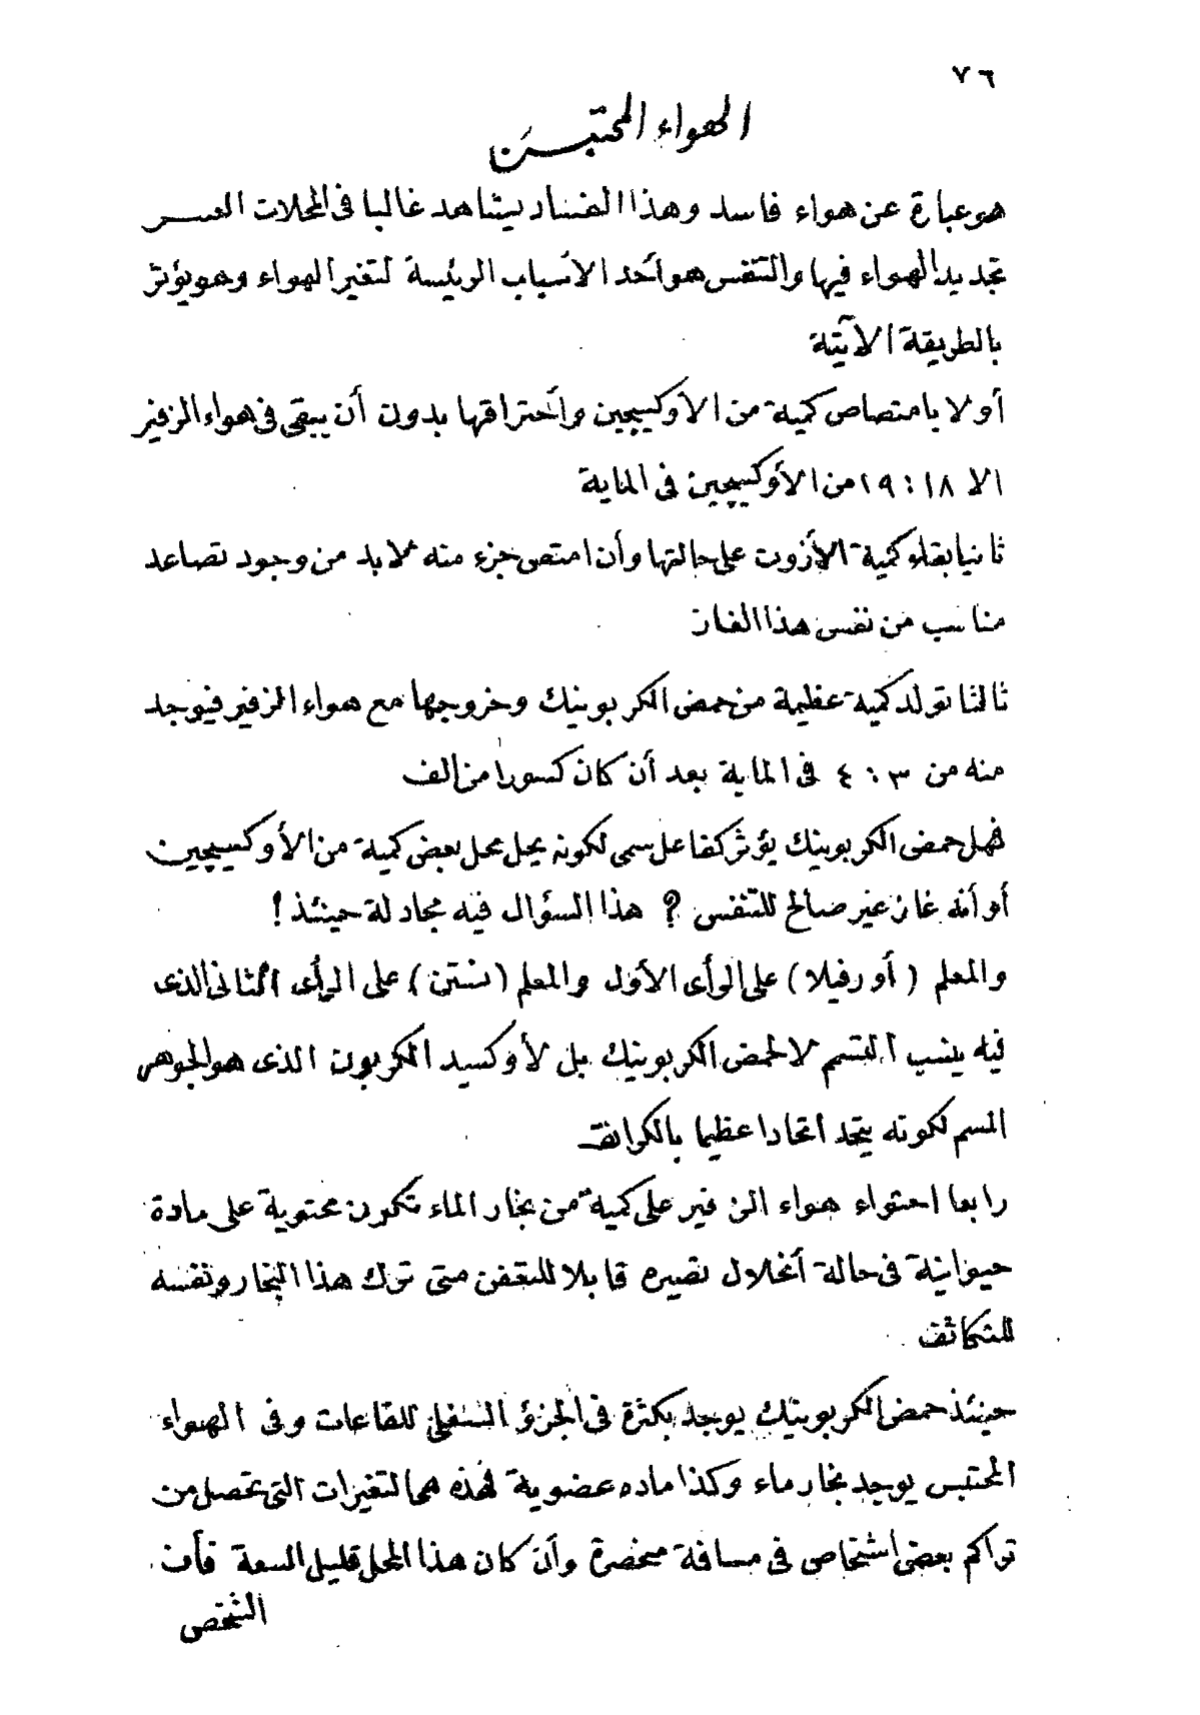 ٧٦
الهواء المحتبس
هو عبارة عن هواء فاسد وهذا الفساد يشاهد غالبا فى المحلات العسر
تجديد الهواء فيها والتنفس هو أحد الأسباب الرئيسة لتغير الهواء وهو يؤثر
بالطريقة الآتية
أولا بامتصاص كمية من الأوكسيچين وأحتراقها بدون أن يبقى فى هواء الزفير
الا ١٨ : ١٩ من الأوكسيچين فى الماية
ثانيا بقاء كمية الأزوت على حالتها وأن امتص جزء منه لابد من وجود تصاعد
مناسب من نفس هذا الغاز
ثالثا تولد كمية عظيمة من حمض الكربونيك وخروجها مع هواء الزفير فيوجد
منه من ٣ : ٤ فى الماية بعد أن كان كسورا من الف
فهل حمض الكربونيك يؤثر كفاعل سمى لكونه يحل محل بعض كمية من الأوكسيچين
أو أنه غاز غير صالح للتنفس ? هذا السؤال فيه مجادلة حينئذ !
والمعلم ( أورفيلا ) على الرأى الأول والمعلم ( نستن ) على الرأى الثانى الذى
فيه ينسب التسم لا لحمض الكربونيك بل لأوكسيد الكربون الذى هو الجوهر
المسم لكونه يتحد اتحادا عظيما بالكرات
رابعا احتواء هواء الزفير على كمية من بخار الماء تكون محتوية على مادة
حيوانية فى حالة أنحلال تصيره قابلا للتعفن متى ترك هذا البخار ونفسه
للتكاثف
حينئذ حمض الكربونيك يوجد بكثرة فى الجزؤ السفلى للقاعات وفى الهواء
المحتبس يوجد بخار ماء وكذا ماده عضوية فهذه هى التغيرات التى تحصل من
تراكم بعض اشخاص فى مسافة منحصرة وأن كان هذا المحل قليل السعة فأن
الشخص